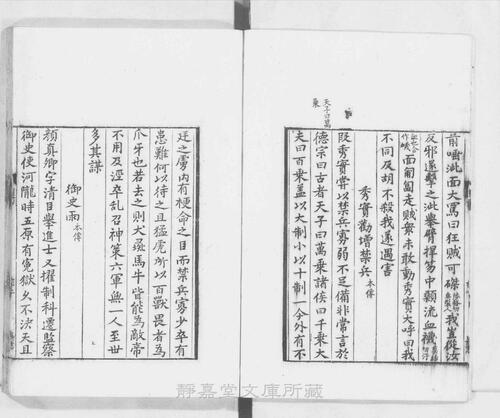 前唾泚面大罵曰狂賊可磔我豈從汝
反邪遂擊之泚擧臂捍笏中顙流血衊
面匍匐走賊衆未敢動秀實大呼曰我
不同反胡不殺我遂遇害
秀實勸增禁兵 本傳
段秀實嘗以禁兵寡弱不足備非常言於
天子曰萬乘
德宗曰古者天子曰萬乘諸侯曰千乘大
夫曰百乘盖以大制小以十制一今外有不
廷之虜内有梗命之臣而禁兵寡少卒有
患難何以待之且猛虎所以百獸畏者為
爪牙也若去之則犬彘馬牛皆能為敵帝
不用及涇卒亂召神策六軍無一人至世
多其謀
御史雨 本傳
顔真卿字清臣擧進士又擢制科遷監察
御史使河隴時五原有寃獄久不決天且
靜嘉堂文庫所藏